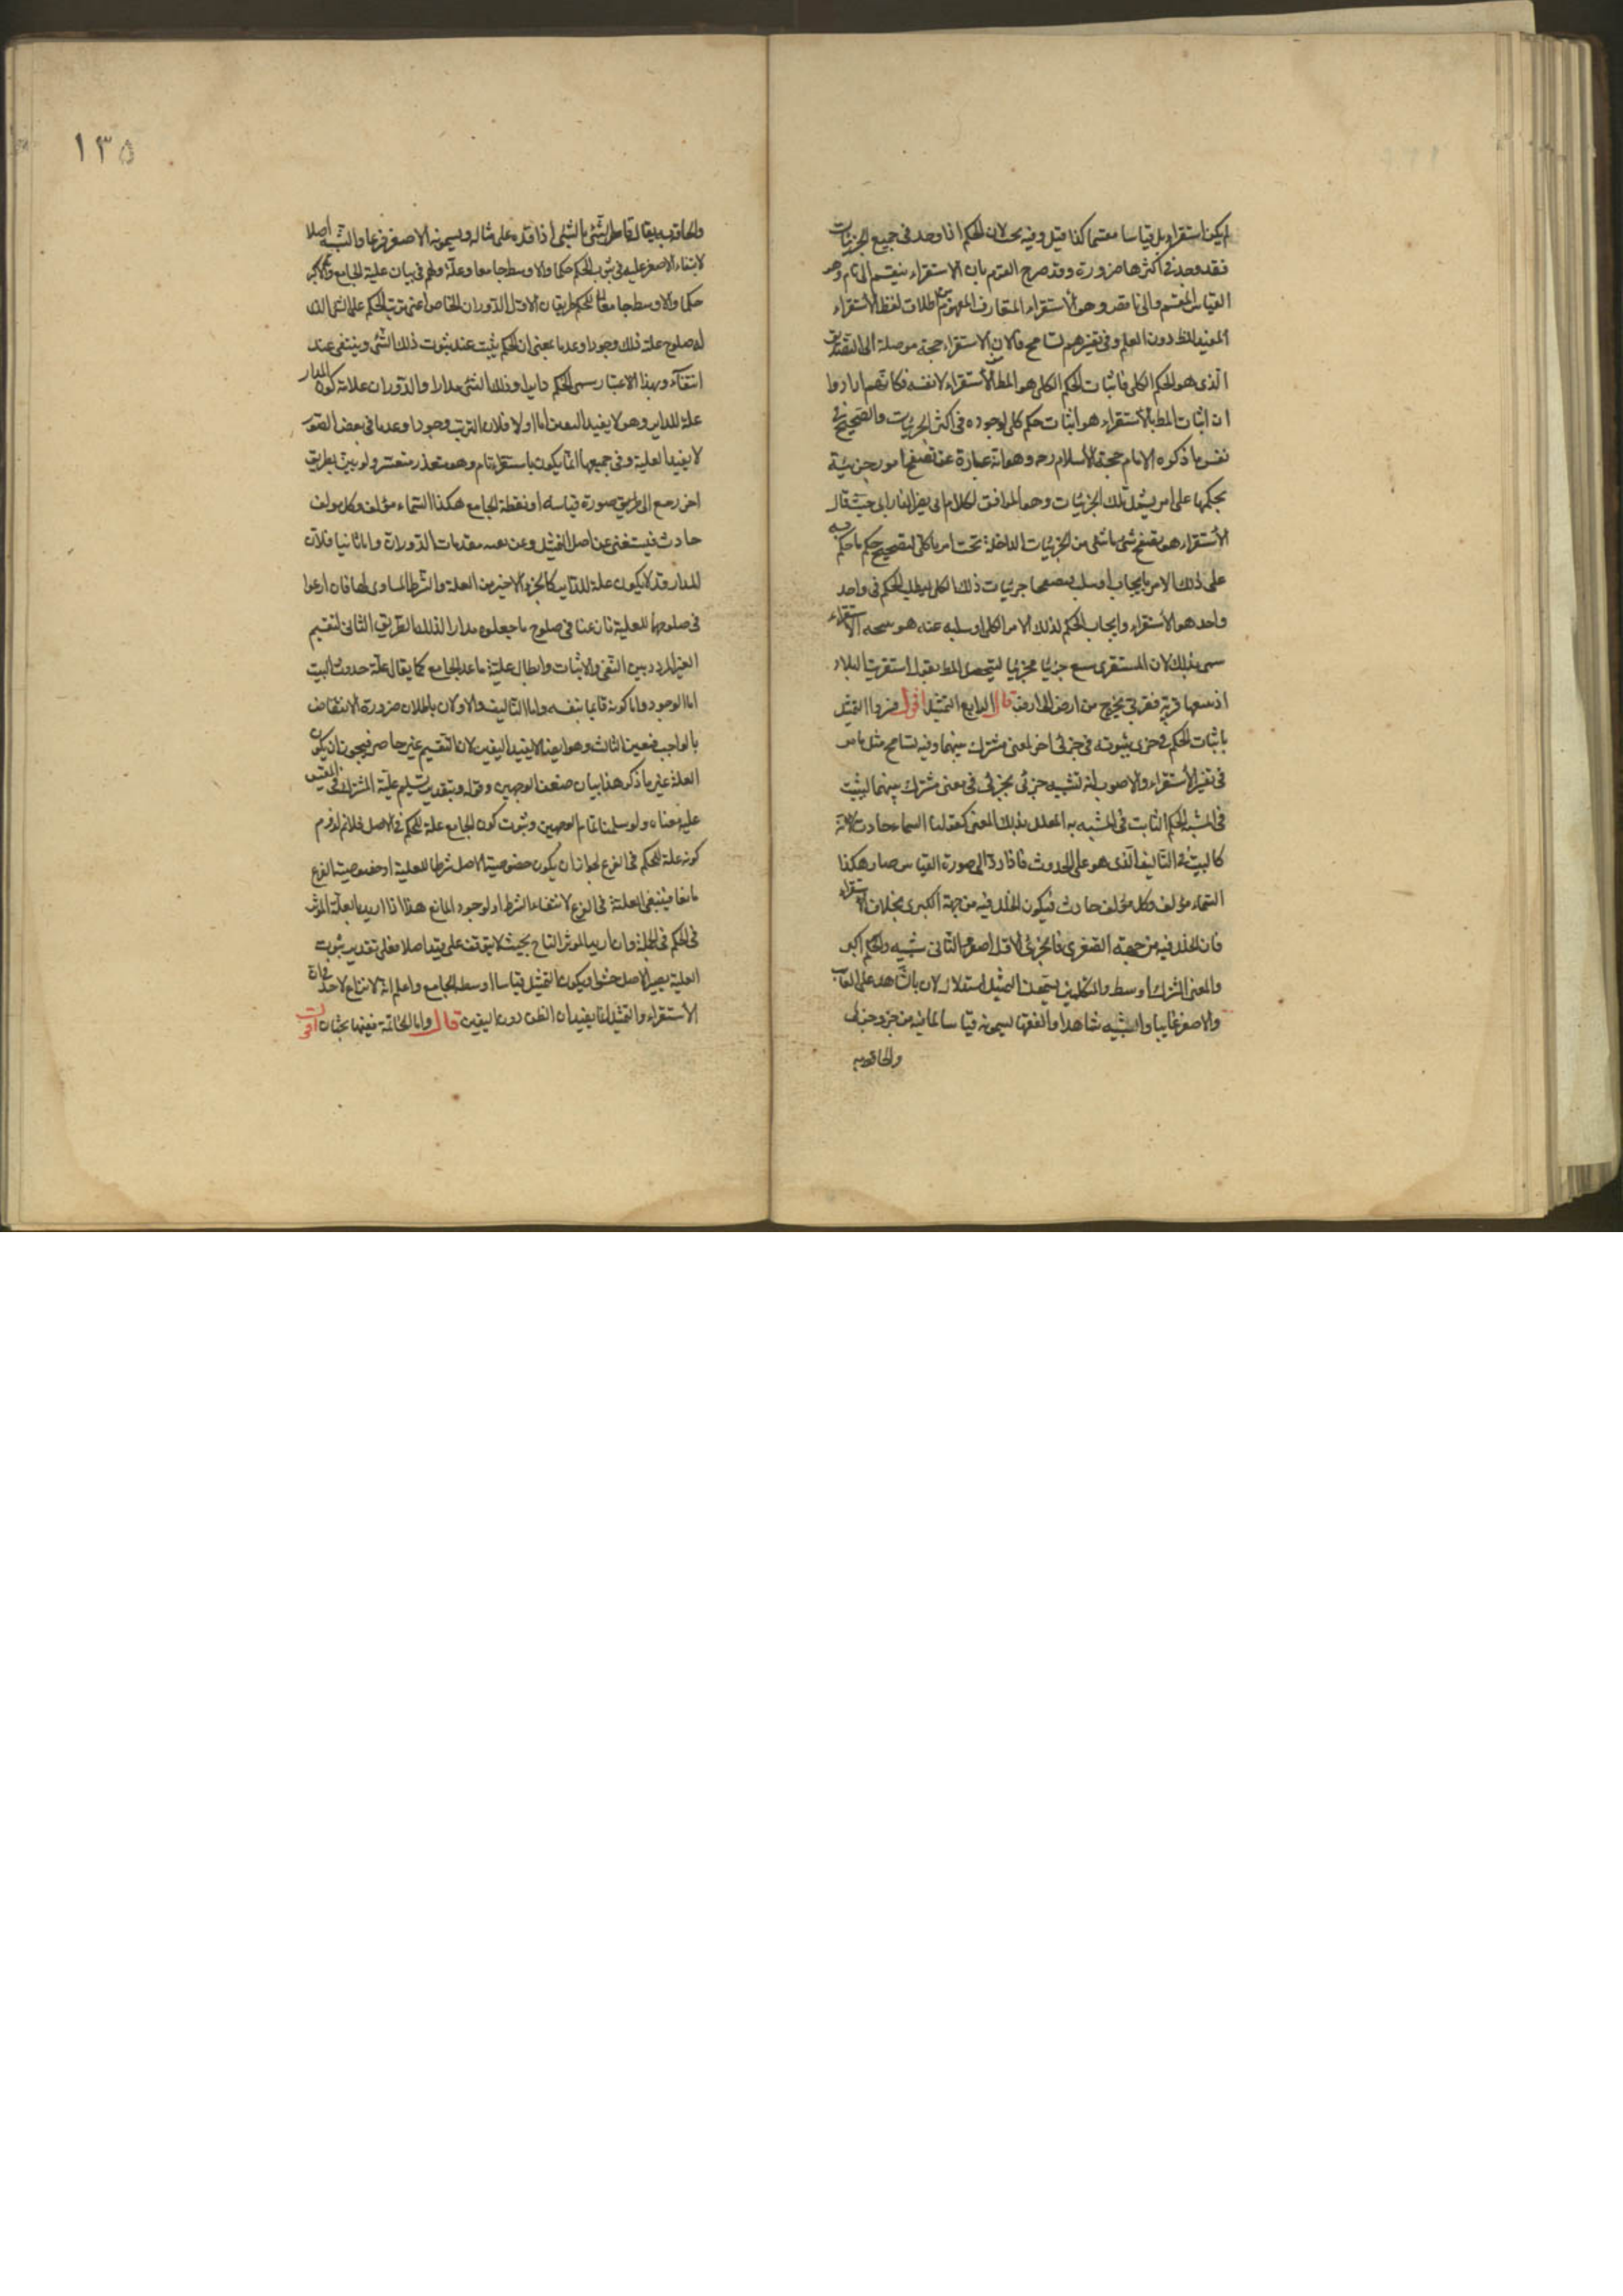 لم يكن استقراء بل قياسا مقسما كذا قيل وفيه بحث لان الحكم اذا وجد فى جميع الجزئيات
فقد وجد فى اكثرها ضرورة وقد صرح القوم بان الاستقراء ينقسم الى تام وهو
القياس المقسم والى ناقص وهو الأستقراء المتعارف المفهوم من اطلاق لفظ الأستقراء
المفيد للظن دون العلم وفى تفسيرهم تسامح فالان الاستقراء حجة موصلة الى التصديق
الذى هو الحكم الكلى فاثبات الحكم الكلى هو المط بالأستقراء لا نفسه فكانهم ارادوا
ان اثبات المط بالأستقراء هو أثبات حكم كلى لوجوده فى اكثر الجزئيات والصحيح فى
تفسيره ما ذكره الامام حجة الأسلام رحه وهو انه عبارة عن تصفح امور جزئية
بحكمها على امر يشمل تلك الجزئيات وهو الموافق لكلام ابى نصر الفارابى حيث قال
الأستقراء هو تصفح شئ شئ من الجزئيات الداخلة تحت امر ما كلى لتصحيح حكم ما حكم به
على ذلك الامر بايجاب او سلب فتصفحنا جزئيات ذلك الكلى لطلب الحكم فى واحد
واحد هو الأستقراء وايجاب الحكم لذلك الامر الكلى او سلبه عنه هو نتيجة الاستقراء
سمى بذلك لان المستقرى يتتبع جزئيا فجزئيا ليتحصل المط يقال استقريت البلاد
اذ تتبعها قرية فقرية يخرج من ارض الى ارض قال الرابع التمثيل اقول فسروا التمثيل
باثبات الحكم فى جزئى بثبوته فى جزئى اخر لمعنى مشترك بينهما وفيه تسامح مثل ما مر
فى تفسير الأستقراء والاصوب انه تشبيه جزئى بجزئى فى معنى مشترك بينهما ليثبت
فى المشبه الحكم الثابت فى المشبه به المعلل بذلك المعنى كقولنا السماء حادث لانه
كالبيت فى التاليف الذى هو علة الحدوث فاذا رد الى صورة القياس صار هكذا
السماء مؤلف وكل مؤلف حادث فيكون الخلل فيه من جهة الكبرى بخلاف الاستقراء
فان الخلل فيه من جهة الصغرى فالجزئى الاول اصغر والثانى شبيه والحكم اكبر
والمعنى المشترك اوسط والمتكلمين يسمون التمثيل استدلالا بالشاهد على الغايب
والاصغر غايبا والشبيه شاهدا والفقهاء يسمونه قياسا لما فيه من جزو جزئى
والحاقه به
١٣٥
والحاقه به يقال قاس الشئ بالشئ اذا قدره على مثاله ويسمون الاصغر فرعا والشبيه اصلا
لابتناء الاصغر عليه فى ثبوت الحكم حكما والاوسط جامعا وعلة ولهم فى بيان علية الجامع والاكبر
حكما والاوسط جامعا للحكم طريقان الاول الدوران الخاص اعنى ترتب الحكم على الشئ الذى
له صلوح علة ذلك وجودا وعدما بمعنى ان الحكم يثبت عند ثبوت ذلك الشئ وينتفى عند
انتفآئه وبهذا الاعتبار يسمى الحكم دايرا وذلك الشئ مدارا والدوران علامة كون المدار
علة للداير وهو لا يفيد اليقين اما اولا فلان الترتب وجودا وعدما فى بعض الصور
لا يفيد العلية وفى جميعها انما يكون باستقراء تام وهو متعذر متعسر ولو بين بطريق
اخر رجع الى طريق صورة قياسه اوسطه الجامع هكذا السماء مؤلف وكل مؤلف
حادث فيستغنى عن اصل التمثيل وعن مقدمات الدوران واما ثانيا فلان
المدار قد لا يكون علة للداير كالجزء الاخير من العلة والشرط المساوى لها فان ادعوا
فى صلوحها للعلية نازعنا فى صلوح ما جعلوه مدارا لذلك الطريق الثانى التقسيم
الغير المردد بين النفى والاثبات وابطال علية ما عدا الجامع كما يقال علة حدوث البيت
اما الوجود واما كونه قايما بنفسه واما التاليف والاولان باطلان ضرورة الانتقاض
بالواجب فتعين الثالث وهو ايضا لا يفيد اليقين لان التقسيم غير حاصر فيجوز ان يكون
العلة غير ما ذكر هذا بيان ضعف الوجهين وقوله وبتقدير تسليم علية المشترك فى المقيس
عليه معناه ولو سلمنا تمام الوجهين وثبوت كون الجامع علة للحكم فى الاصل فلا نم لزوم
كونه علة للحكم فى الفرع لجواز ان يكون خصوصية الاصل شرطا للعلية او خصوصية الفرع
مانعا فينتفى العلية فى الفرع لانتفاء الشرط او لوجود المانع هذا اذا اريد بالعلة المؤثر
فى الحكم فى الجملة وان اريد المؤثر التام بحيث لا يتوقف على قيد اصلا فعلى تقدير ثبوت
العلية يصير الاصل حشوا ويكون التمثيل قياسا اوسطه الجامع واعلم انه لا نزاع لاحد فى ان
الأستقراء والتمثيل انما يفيدان الظن دون اليقين قال واما الخاتمة ففيها بحثان اقول